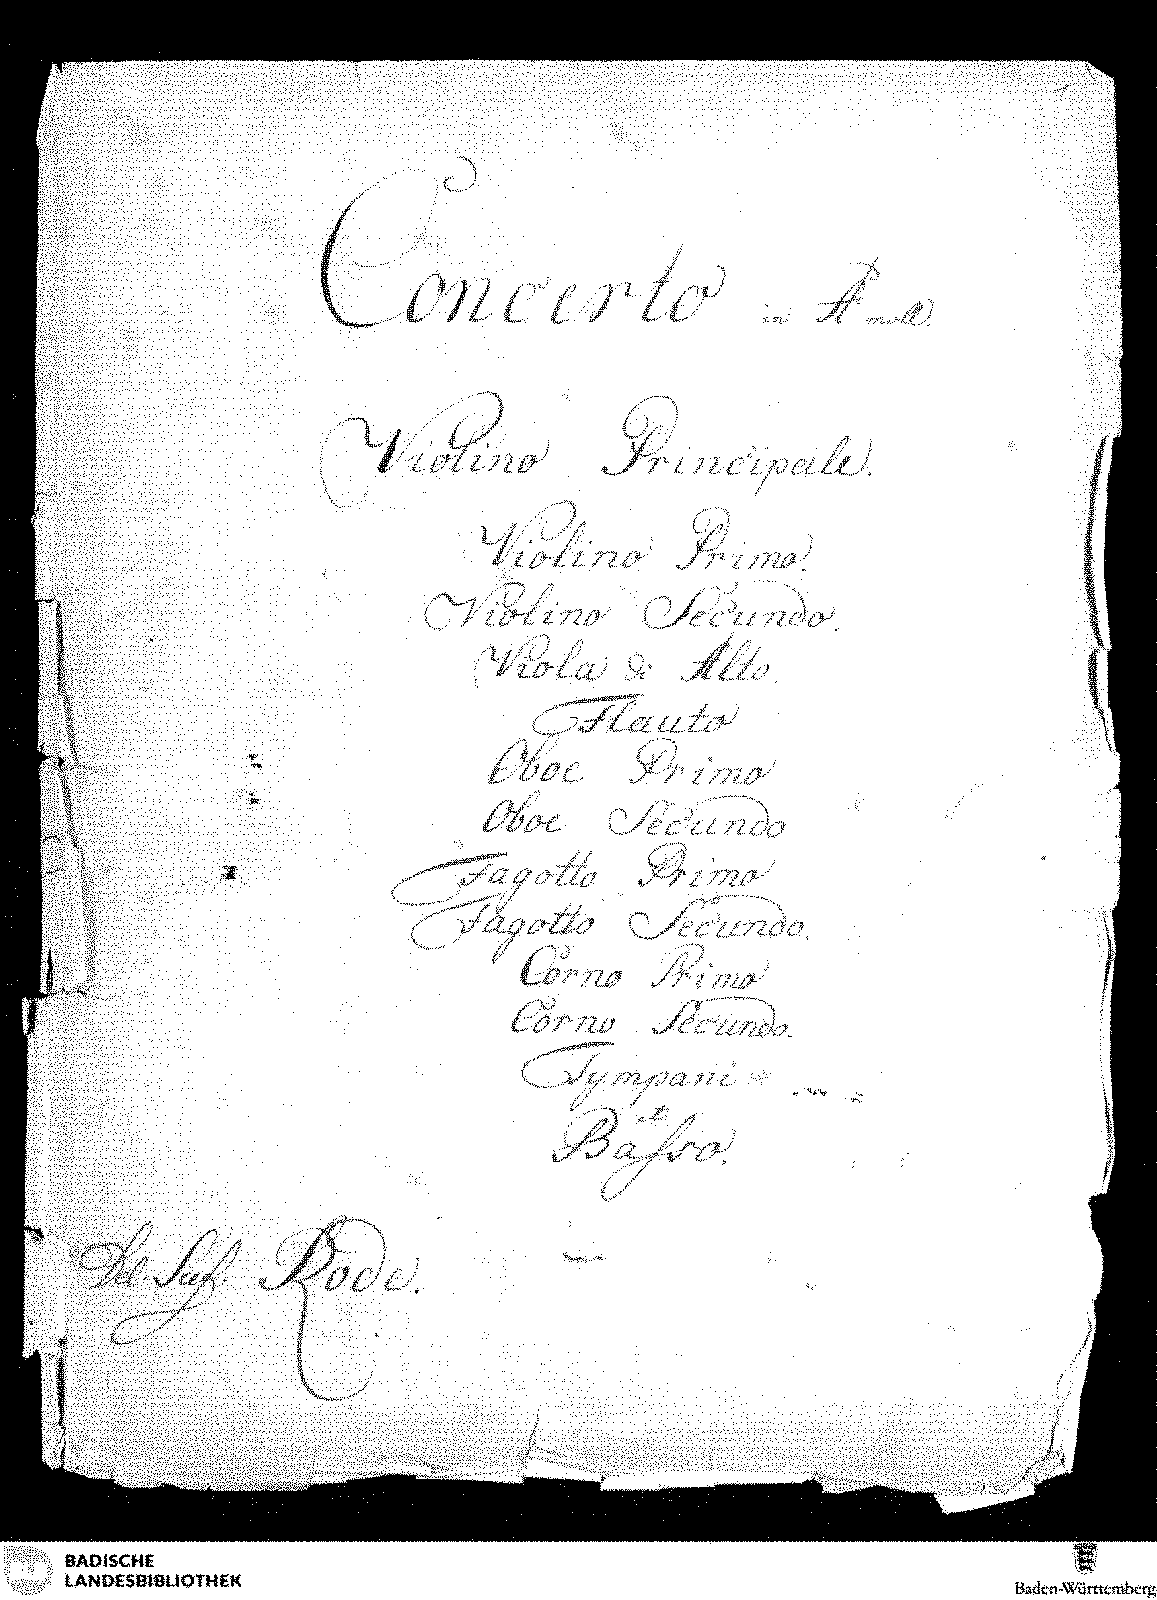 Concerto in A moll.
Violino Principale.
Violino Primo.
Violino Secundo.
Viola di Alto.
Flauto
Oboe Primo
Oboe Secundo
Fagotto Primo
Fagotto Secundo.
Corno Primo
Corno Secundo.
Tympani
et
Basso.
Del Sig. Rode.
BADISCHE
LANDESBIBLIOTHEK
Baden-Württemberg